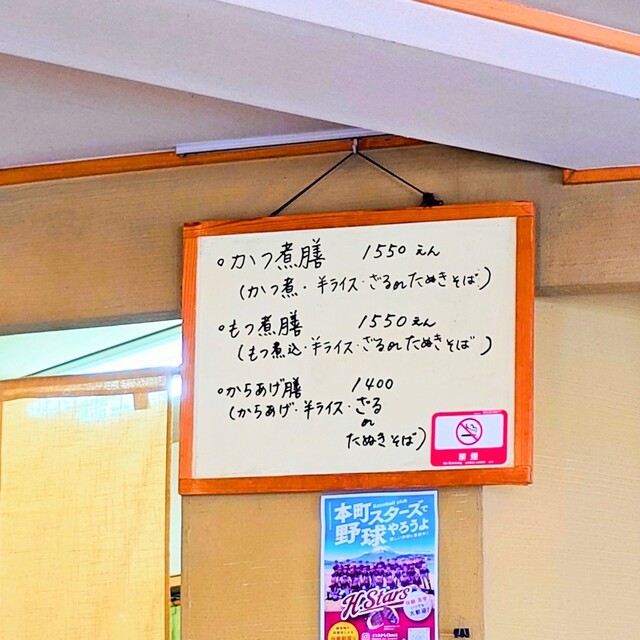 ・かつ煮膳 1550えん
(かつ煮・半ライス・ざるorたぬきそば)
・もつ煮膳 1550えん
(もつ煮込・半ライス・ざるorたぬきそば)
・からあげ膳 1400
(からあげ・半ライス・ざる
or
たぬきそば)
禁煙
Baseball club
本町スターズで
野球やろうよ
H-Stars